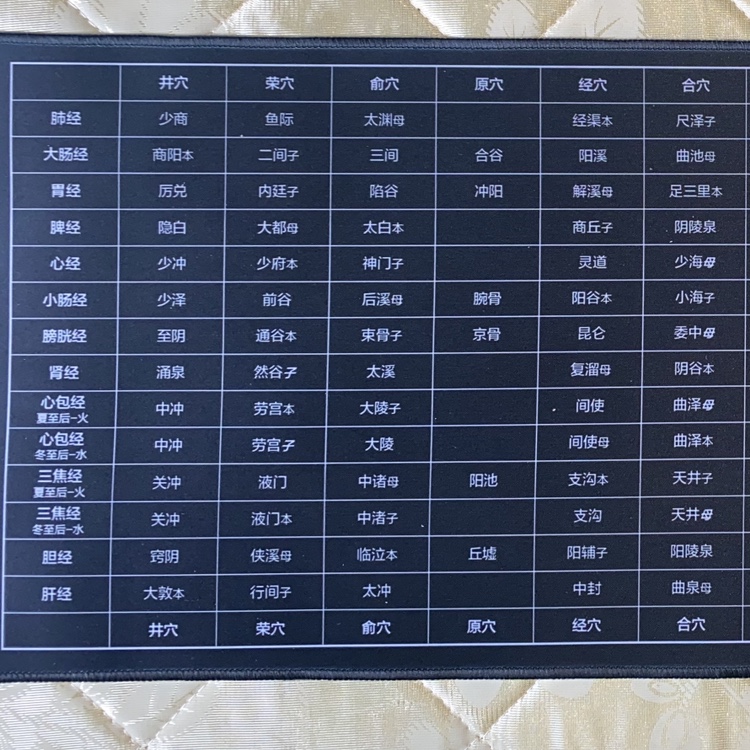 井穴 荣穴 俞穴 原穴 经穴 合穴
肺经 少商 鱼际 太渊母 经渠本 尺泽子
大肠经 商阳本 二间子 三间 合谷 阳溪 曲池母
胃经 厉兑 内廷子 陷谷 冲阳 解溪母 足三里本
脾经 隐白 大都母 太白本 商丘子 阴陵泉
心经 少冲 少府本 神门子 灵道 少海母
小肠经 少泽 前谷 后溪母 腕骨 阳谷本 小海子
膀胱经 至阴 通谷本 束骨子 京骨 昆仑 委中母
肾经 涌泉 然谷子 太溪 复溜母 阴谷本
心包经 中冲 劳宫本 大陵子 间使 曲泽母
夏至后-火
心包经 中冲 劳宫子 大陵 间使母 曲泽本
冬至后-水
三焦经 关冲 液门 中诸母 阳池 支沟本 天井子
夏至后-火
三焦经 关冲 液门本 中渚子 支沟 天井母
冬至后-水
胆经 窍阴 侠溪母 临泣本 丘墟 阳辅子 阳陵泉
肝经 大敦本 行间子 太冲 中封 曲泉母
井穴 荣穴 俞穴 原穴 经穴 合穴